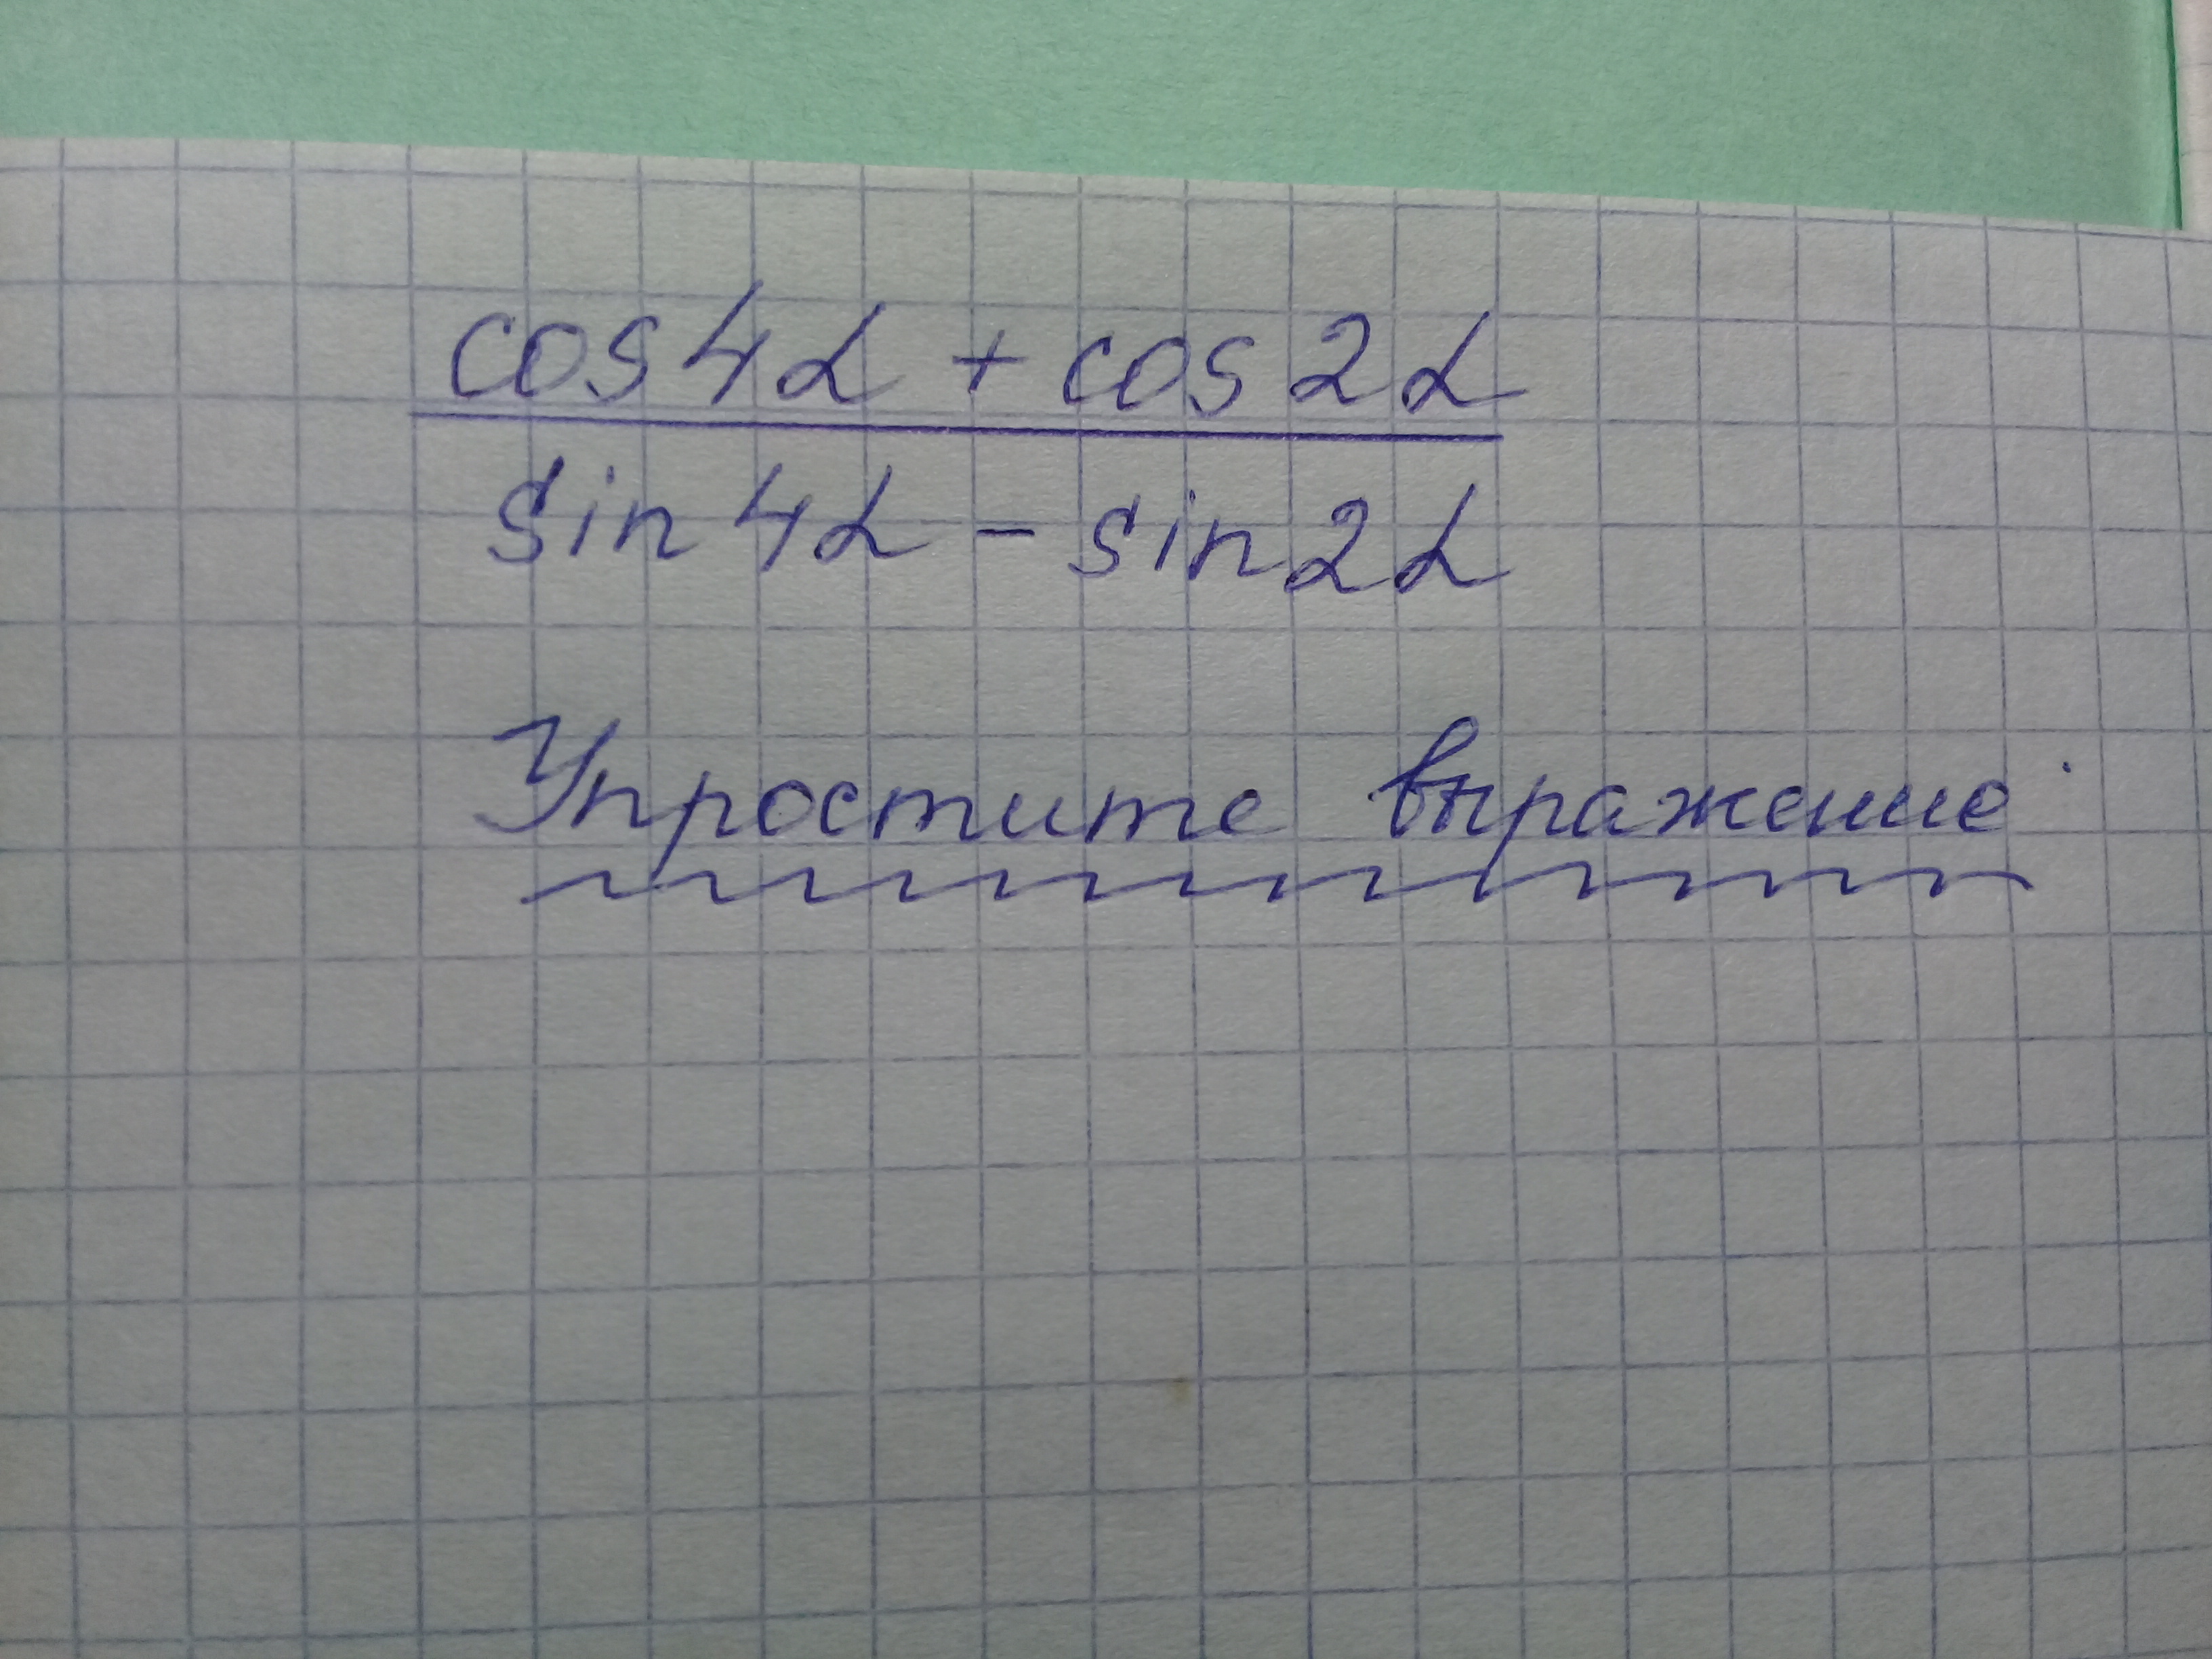 cos4α + cos2α
sin4α - sin2α
Упростите выражение